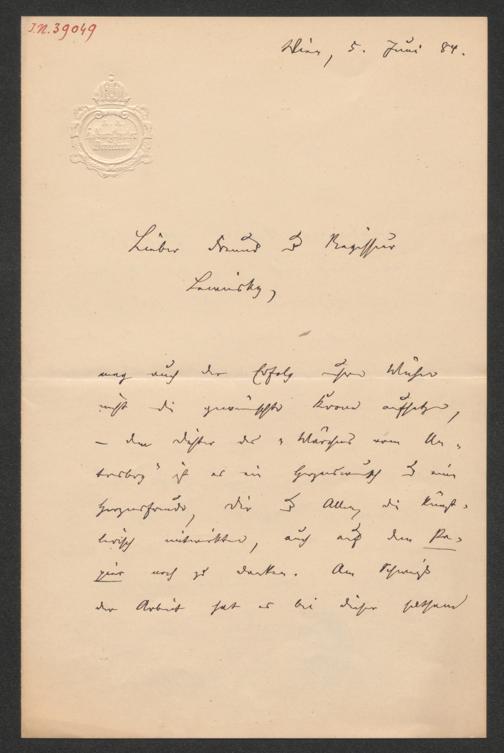 J.N. 39049
Wien, 5. Juni 84.
Lieber Freund u Regisseur
Lewinsky,
mag auch der Erfolg unsrer Mühen
nicht die gewünschte Krone aufsetzen,
– dem Dichter des „Märchens vom Un-
tersberg" ist es ein Herzenswunsch u eine
Herzensfreude, Dir u Allen, die künst-
lerisch mitwirkten, auch auf dem Pa-
pier noch zu danken. Am Schweiß
der Arbeit hat es bei dieser